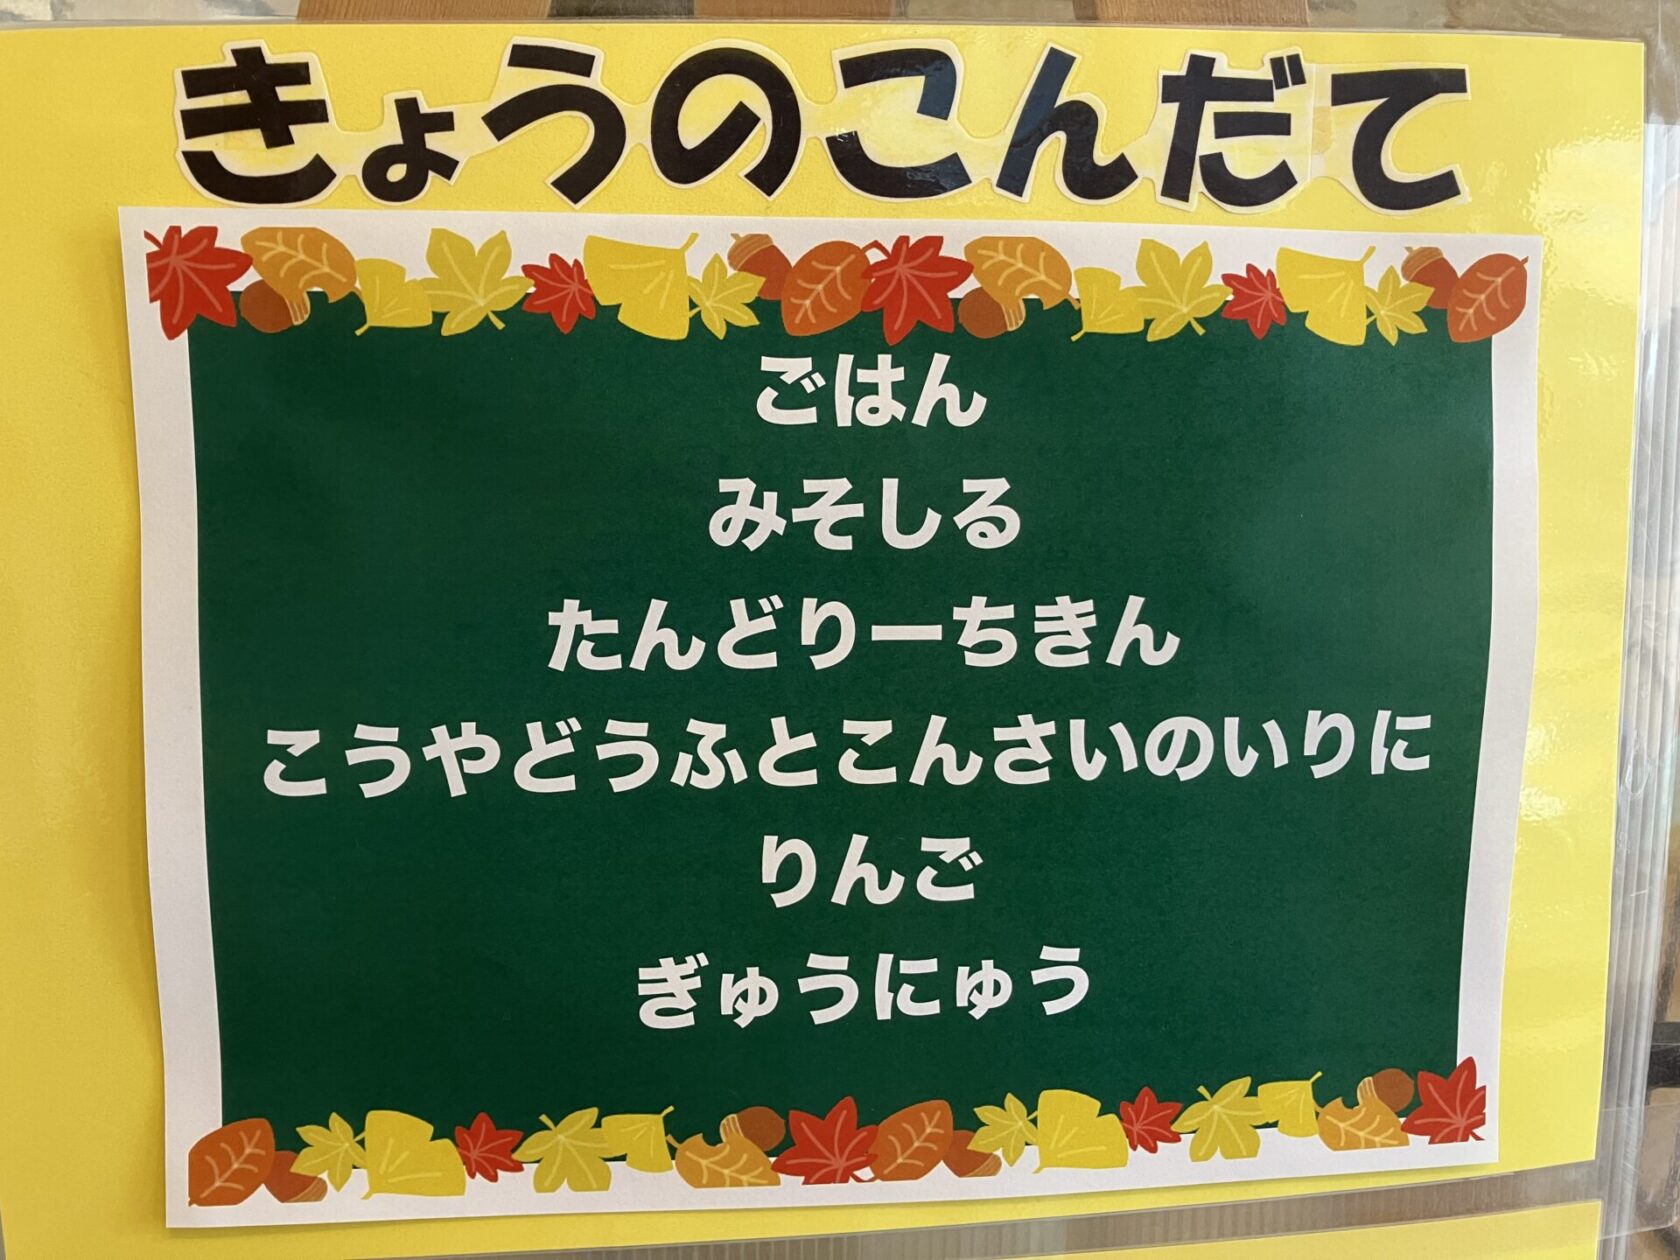 きょうのこんだて
ごはん
みそしる
たんどりーちきん
こうやどうふとこんさいのいりに
りんご
ぎゅうにゅう